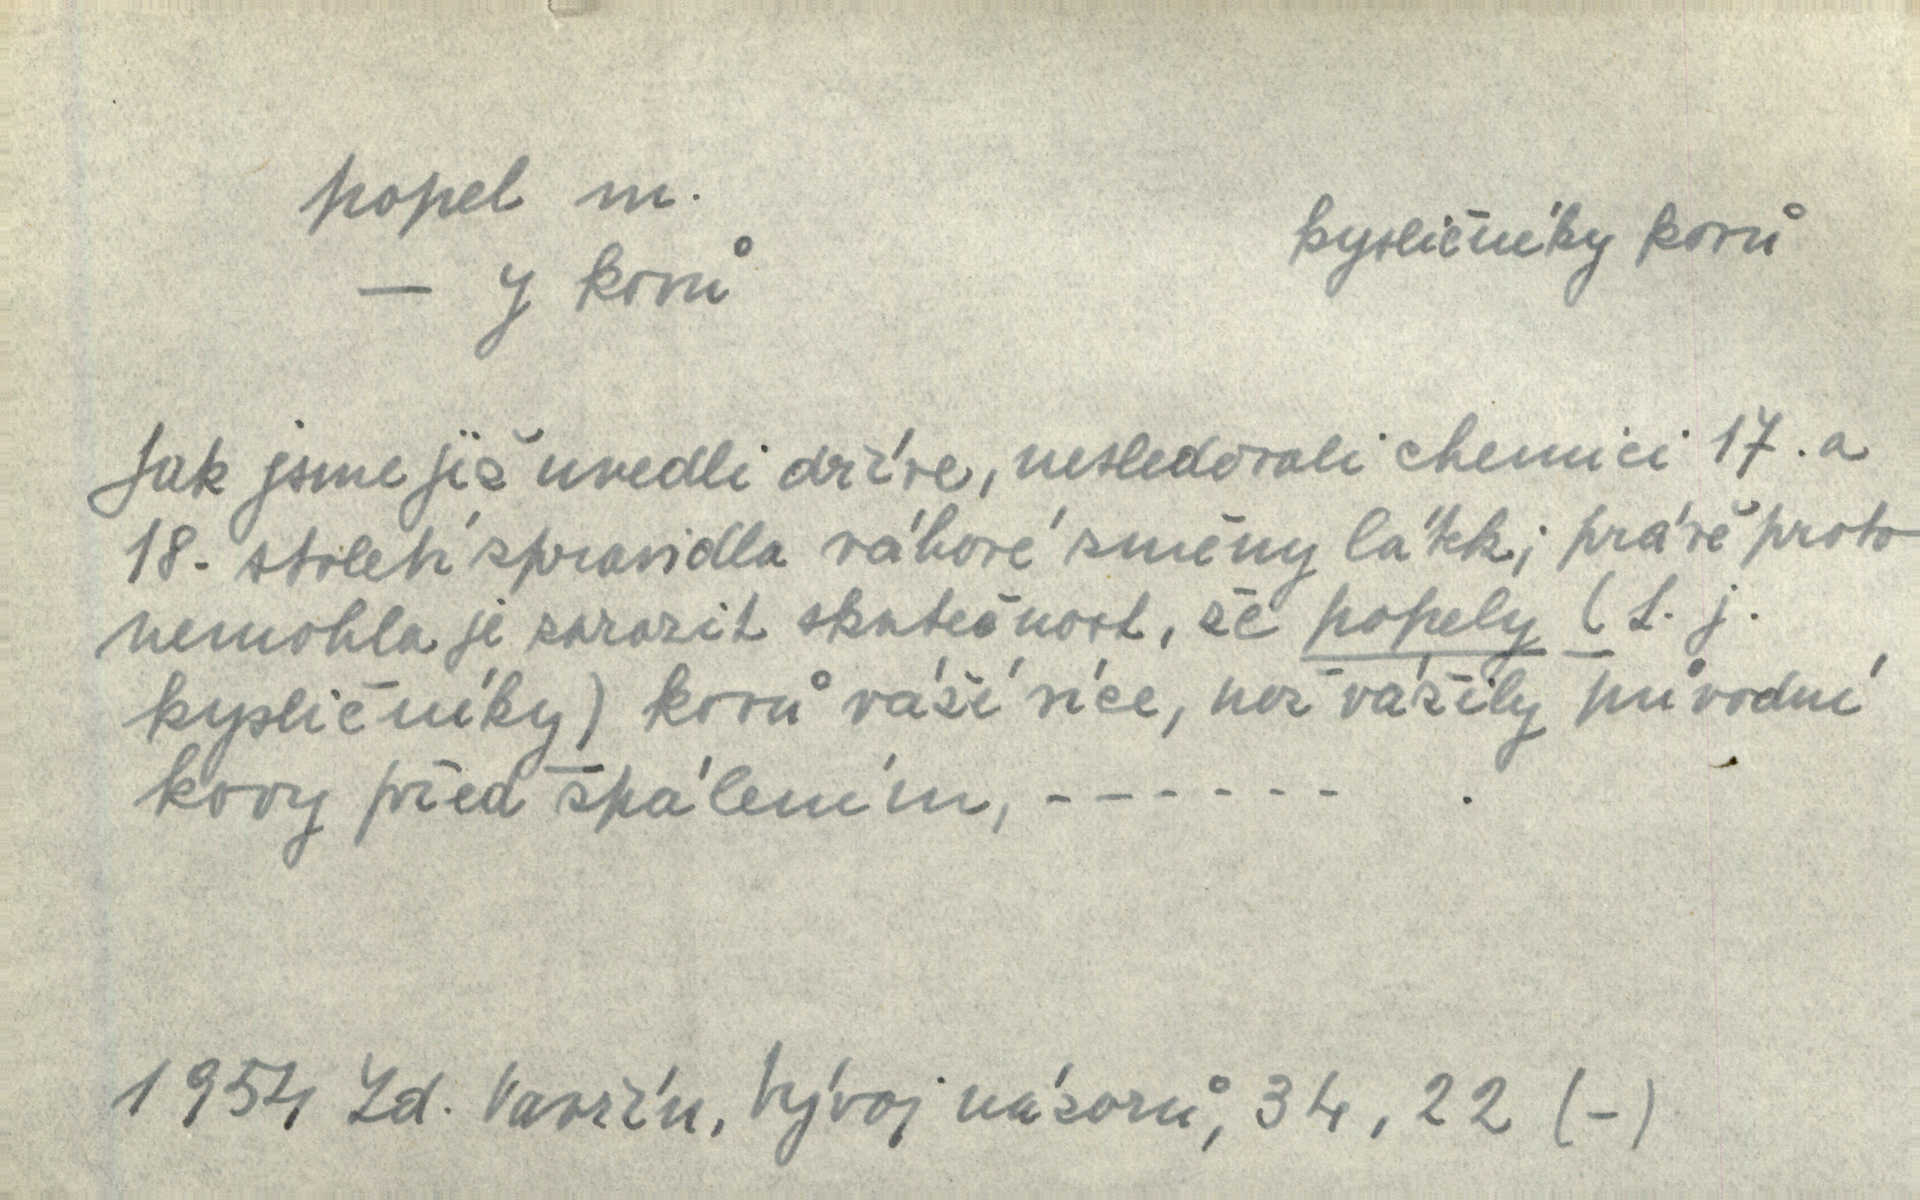 popel m.
kysličníky kovů
— y kovů
Jak jsme již uvedli dříve, nesledovali chemici 17. a
18. století zpravidla váhové změny látek; právě proto
nemohla je zarazit skutečnost, že popely (t. j.
kysličníky) kovů váží více, než vážily původní
kovy před spálením, - - - - - - .
1954 Zd. Vavřín, Vývoj názorů, 34, 22 (-)